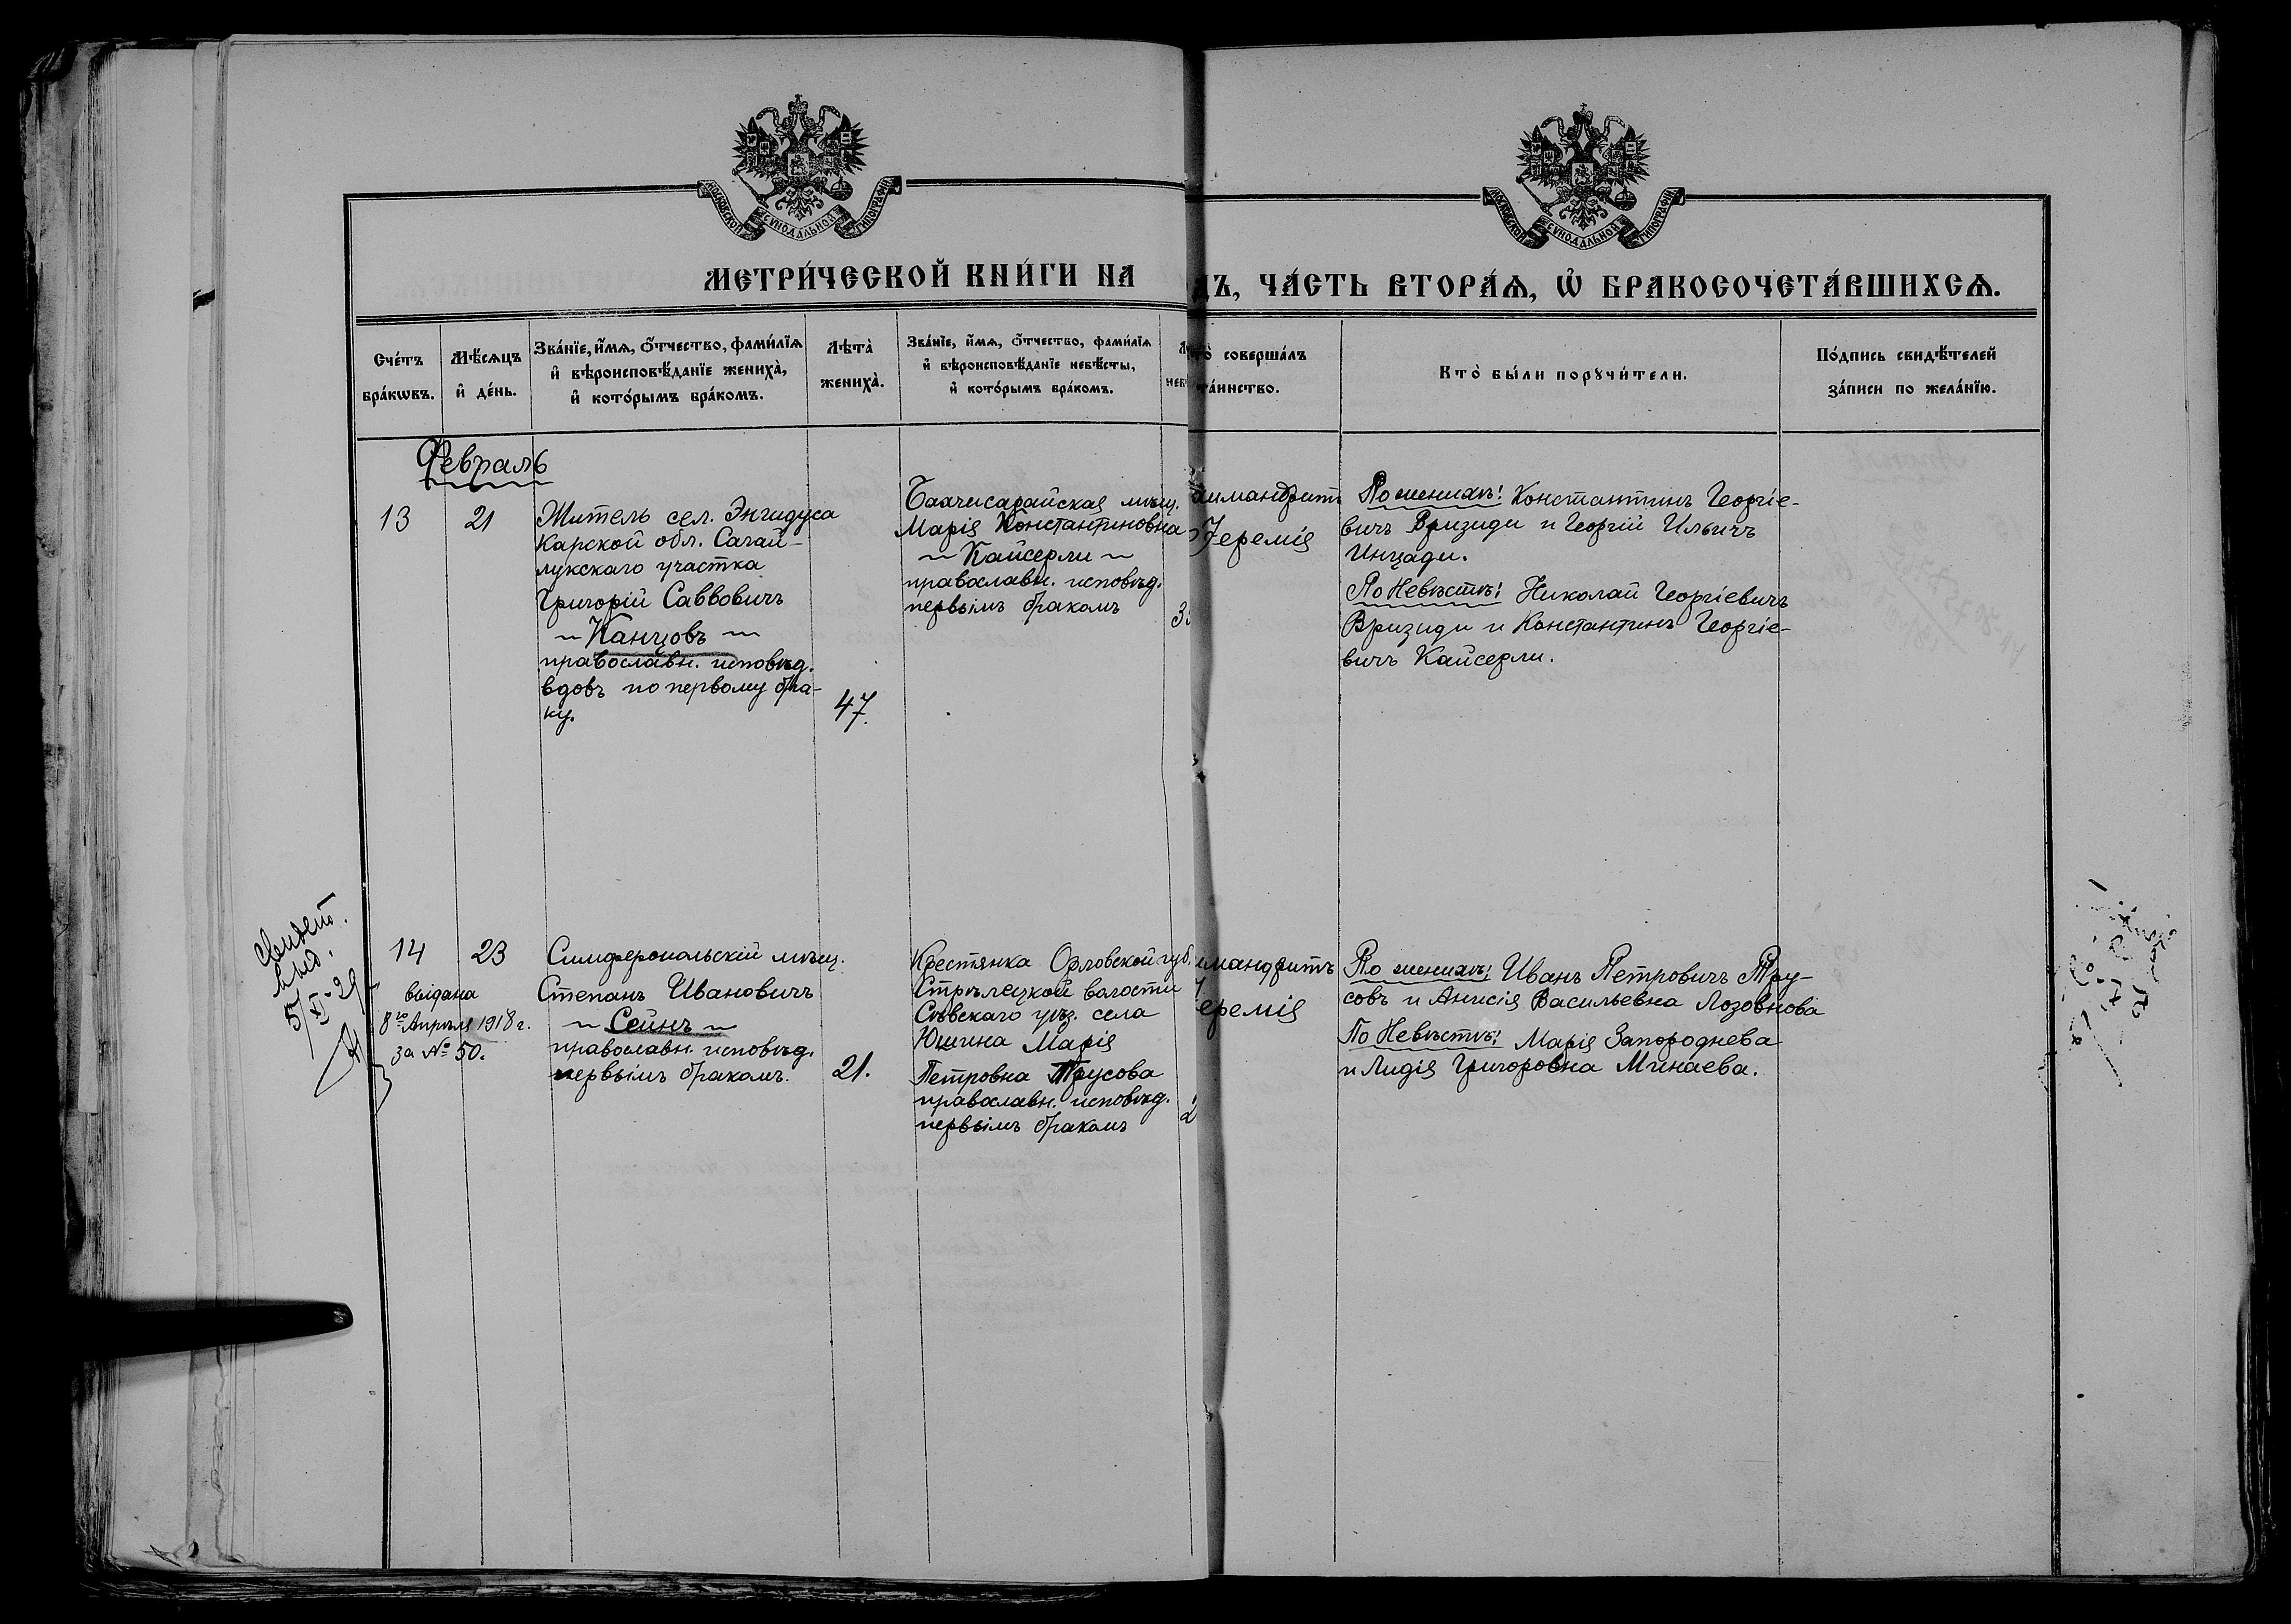 МОСКОВСКОЙ СѴНОДАЛЬНОЙ ТИПОГРАФІИ
МОСКОВСКОЙ СѴНОДАЛЬНОЙ ТИПОГРАФІИ
МЕТРИ́ЧЕСКОЙ КНИ́ГИ НА
ДЪ, ЧА́СТЬ ВТОРА́Ѧ, Ѽ БРАКОСОЧЕТА́ВШИХСѦ.
Сче́тъ
бра́кѡвъ.
Мѣ́сѧцъ
и҆ де́нь.
Зва́нїе, и҆́мѧ, ѻ҆́тчество, фами́лїѧ
и҆ вѣроисповѣ́данїе жениха̀,
и҆ кото́рымъ бра́комъ.
Лѣта̀
жениха̀.
Зва́нїе, и҆́мѧ, ѻ҆́тчество, фами́лїѧ
и҆ вѣроисповѣ́данїе невѣ́сты,
и҆ кото́рымъ бра́комъ.
Л
нев
то̀ соверша́лъ
та́инство.
Кто̀ бы́ли порꙋчи́тели.
По́дпись свидѣ́телей
за́писи по жела́нїю.
Февраль
13
21
Житель сел. Энгидуса
Карской обл. Сагай-
лукскаго участка
Григорій Саввовичъ
Канцовъ
православн. исповѣд.
вдовъ по первому бра-
ку.
47.
Бахчисарайская мѣщ.
Марія Константиновна
Кайсерли
православн. исповѣд.
первымъ бракомъ
3
химандритъ
Іеремія
По женихѣ: Константинъ Георгіе-
вичъ Вризиди и Георгій Ильичъ
Инцади.
По Невѣстѣ: Николай Георгіевичъ
Вризиди и Константинъ Георгіе-
вичъ Кайсерли.
Свидет.
выд.
5/XI-29
14
23
выдана
8го Апрѣля 1918 г.
за № 50.
Симферопольскій мѣщ.
Степанъ Ивановичъ
Сеинъ
православн. исповѣд.
первымъ бракомъ.
21.
Крестянка Орловской губ.
Стрѣлецкой волости
Сѣвскаго уѣз. села
Юшина Марія
Петровна Трусова
православн. исповѣд.
первымъ бракомъ
2
имандритъ
еремія
По женихѣ: Иванъ Петровичъ Тру-
совъ и Анисія Васильевна Лозовнова
По Невѣстѣ: Марія Запороднева
и Лидія Григоровна Минаева.